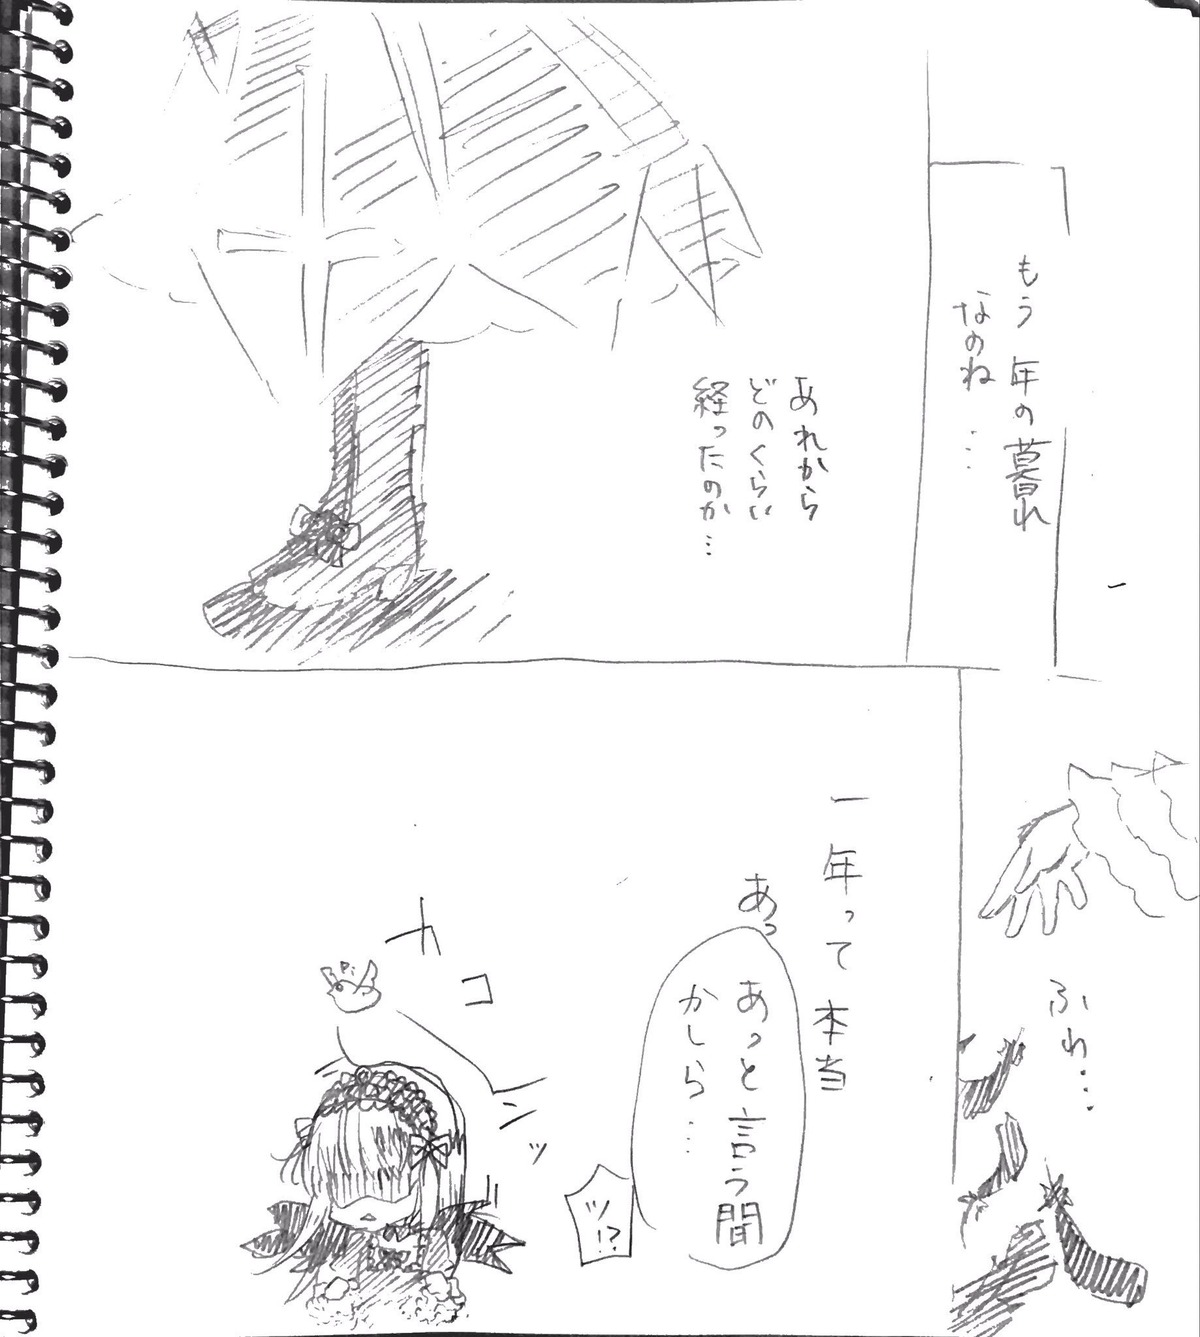 もう年の暮れ
なのね…
あれから
どのくらい
経ったのか…
ふわ…
一年って本当
あっ
あっと言う間
かしら…
ッ!?
カコンッ
Pi